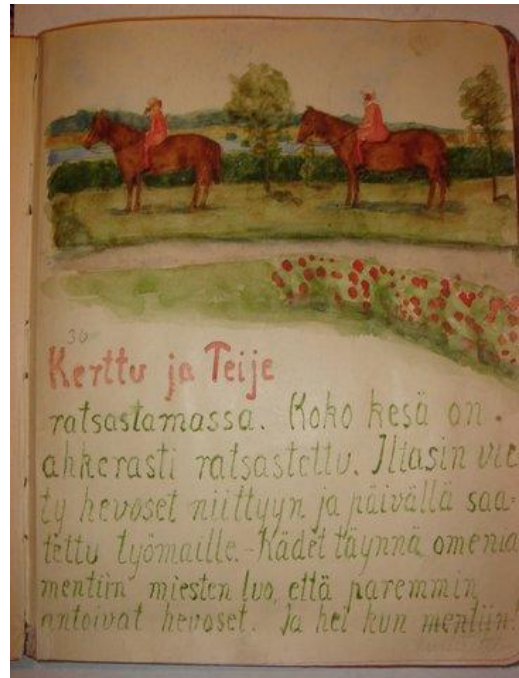 36
Kerttu ja Teije
ratsastamassa. Koko kesä on
ahkerasti ratsastettu. Iltasin vie
ty hevoset niittyyn ja päivällä saa=
tettu työmaille.-Kädet täynnä omenia
mentiin miesten luo, että paremmin
antoivat hevoset. Ja hei kun mentiin!